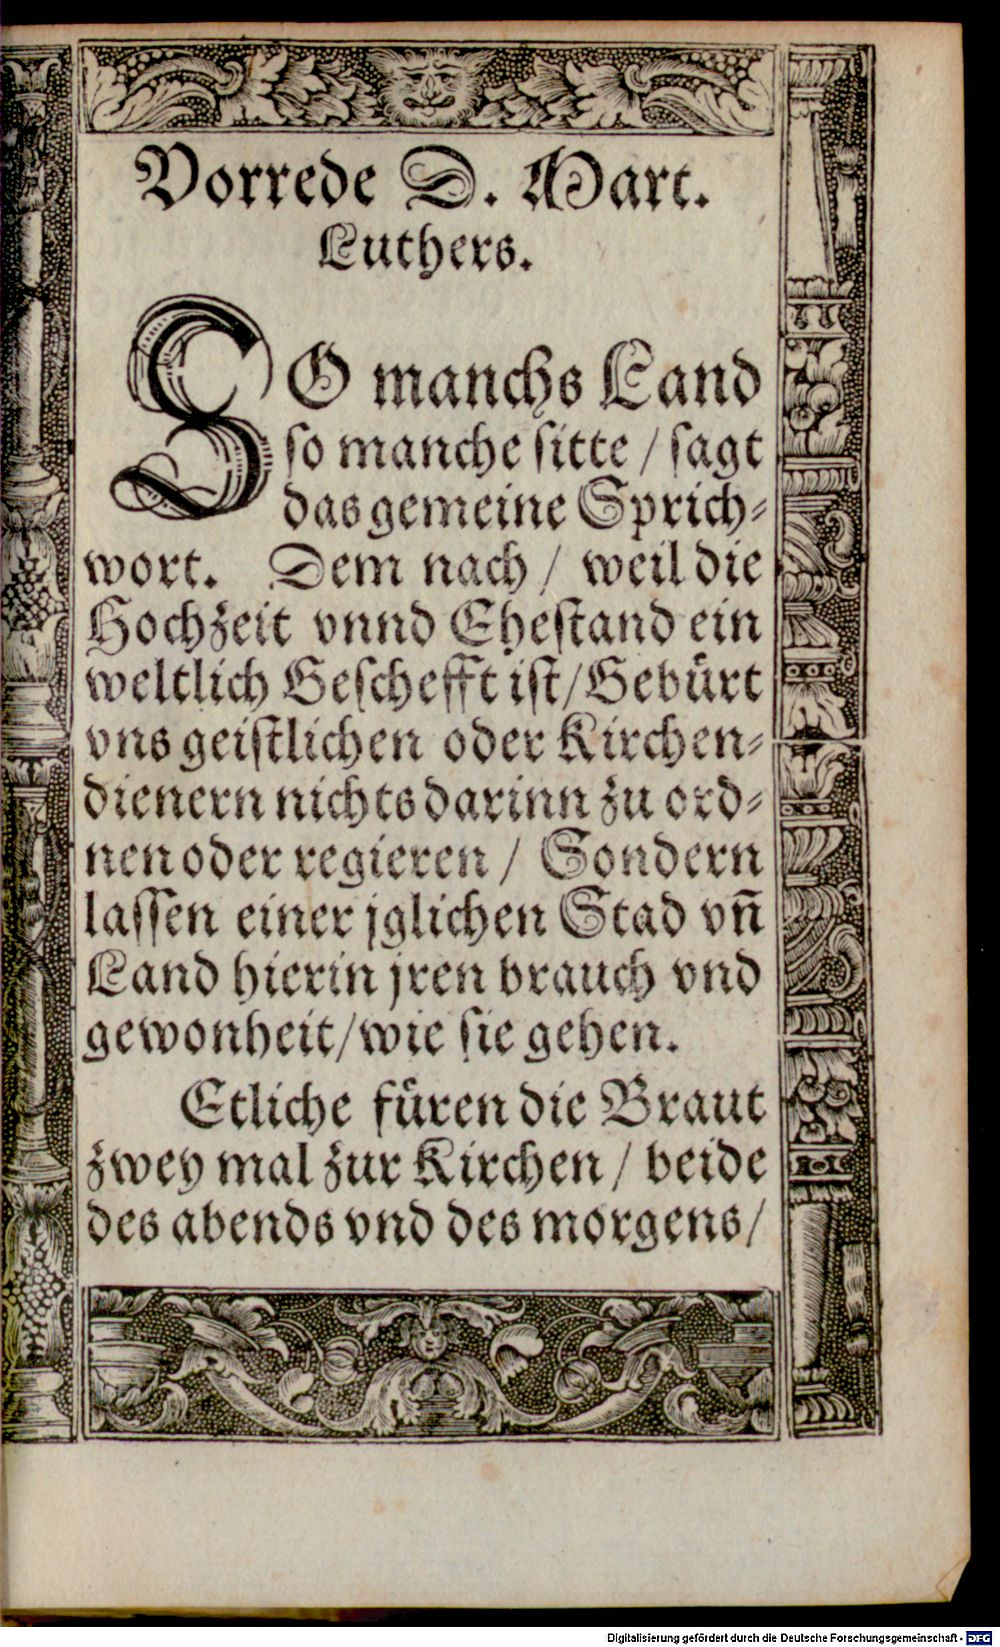 Vorrede D. Mart.
Luthers.
SO manchs Land
so manche sitte / sagt
das gemeine Sprich⸗
wort. Dem nach / weil die
Hochzeit vnnd Ehestand ein
weltlich Geschefft ist/Gebürt
vns geistlichen oder Kirchen⸗
dienern nichts darinn zu ord⸗
nen oder regieren / Sondern
lassen einer jglichen Stad vn̄
Land hierin jren brauch vnd
gewonheit/wie sie gehen.
Etliche füren die Braut
zwey mal zur Kirchen / beide
des abends vnd des morgens/
Digitalisierung gefördert durch die Deutsche Forschungsgemeinschaft - DFG